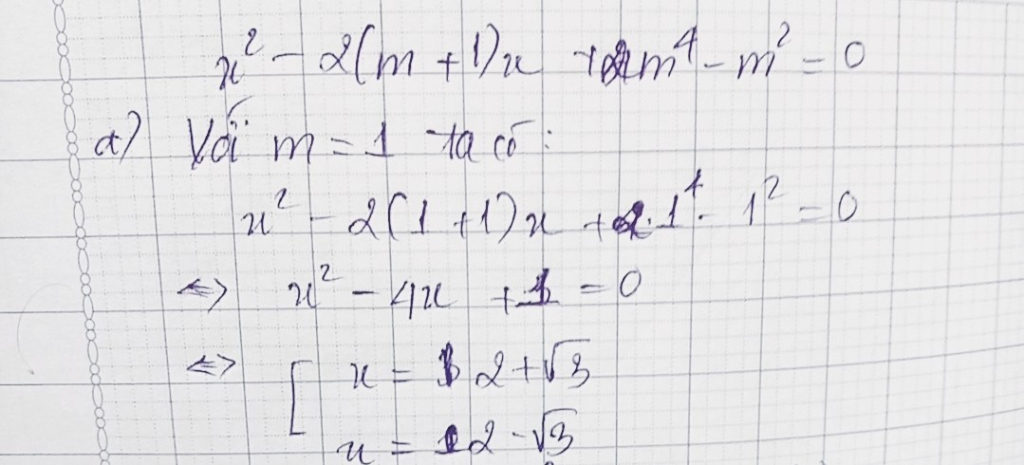 x² - 2(m + 1)x + 2m⁴ - m² = 0
a) Với m = 1 ta có:
x² - 2(1 + 1)x + 2.1⁴ - 1² = 0
<=> x² - 4x + 1 = 0
<=> [ x = 2 + √3
x = 2 - √3